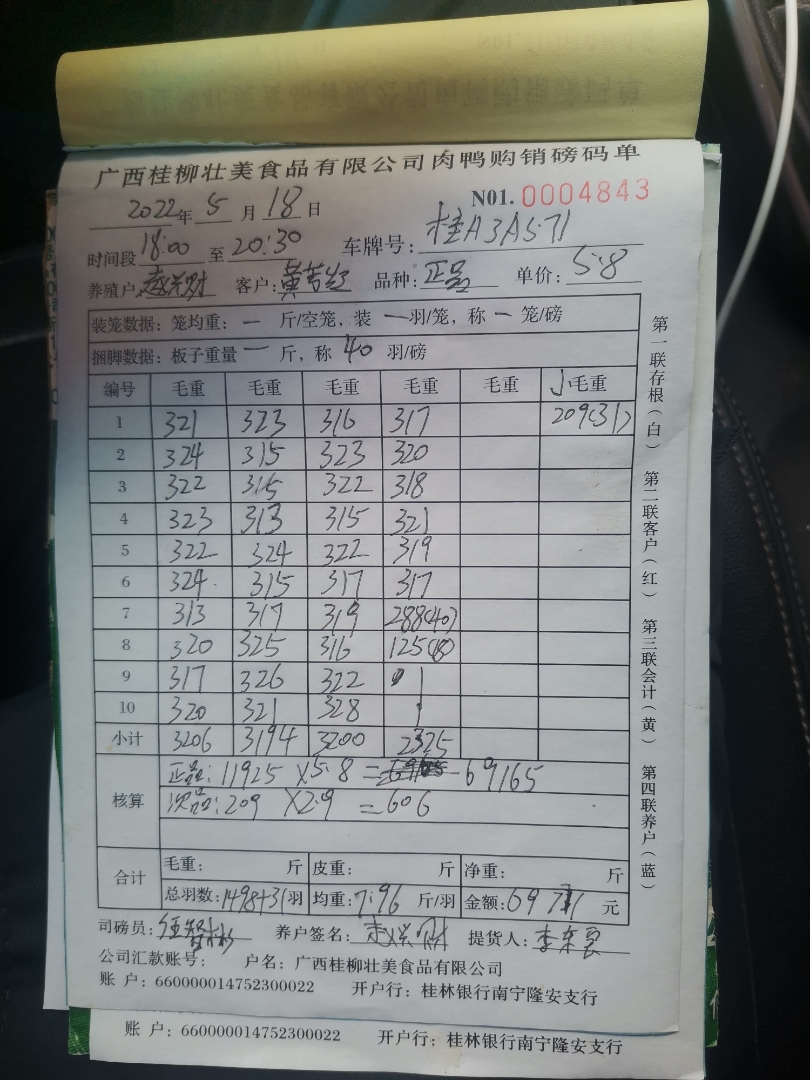 广西桂柳壮美食品有限公司肉鸭购销磅码单
2022年 5 月 18 日 N01. 0004843
时间段 18:00 至 20:30 车牌号: 桂A3A571
养殖户: 客户: 品种: 正品 单价: 5.8
装笼数据: 笼均重: 一 斤/空笼, 装 一 羽/笼, 称 一 笼/磅
捆脚数据: 板子重量 一 斤, 称 40 羽/磅
编号 毛重 毛重 毛重 毛重 毛重 小毛重
1 321 323 316 317 209(31)
2 324 315 323 320
3 322 315 322 318
4 323 313 315 321
5 322 324 322 319
6 324 315 317 317
7 313 317 319 288(40)
8 320 325 316 125(18)
9 317 326 322
10 320 321 328
小计 3206 3194 3200 2325
核算
正品: 11925 X5.8 = 69165
次品: 209 X2.9 =606
合计
毛重: 斤 皮重: 斤 净重: 斤
总羽数: 1498+31 羽 均重: 7.96 斤/羽 金额: 元
司磅员: 养户签名: 提货人:
公司汇款账号: 户名: 广西桂柳壮美食品有限公司
账 户: 660000014752300022 开户行: 桂林银行南宁隆安支行
账 户: 660000014752300022 开户行: 桂林银行南宁隆安支行
第一联存根(白) 第二联客户(红) 第三联会计(黄) 第四联养户(蓝)